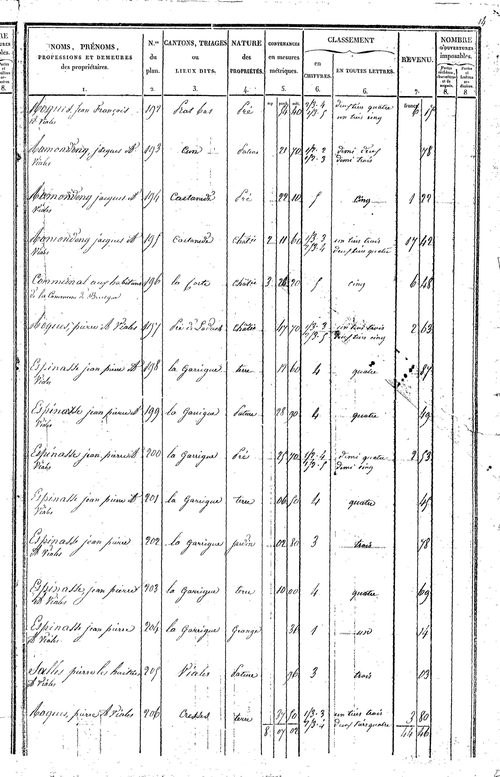 14
NOMS, PRÉNOMS, PROFESSIONS ET DEMEURES des propriétaires. | N.os du plan. | CANTONS, TRIAGES ou LIEUX DITS. | NATURE des PROPRIÉTÉS. | CONTENANCES en mesures métriques. | CLASSEMENT en CHIFFRES. | EN TOUTES LETTRES. | REVENU. | NOMBRE D'OUVERTURES imposables.
1. 2. 3. 4. 5. 6. 6. 7. 8. 8.
jean François 192 Prat bas Pré 40 1/3. 4 2/3. 5 un tiers cinq
Viales
jacques à 193 21 70 1/2. 2 1/2. 3 demi deux demi trois 78
Viales
jacques à 194 Castanede Pré 22 10 5 cinq 1 22
Viales
jacques à 195 Castanede 2 11 60 1/3. 3 2/3. 4 un tiers trois deux tiers quatre 17 42
Viales
Communal aux habitans 196 la Coste 3 20 5 cinq 6 48
de la Commune de
pierre à Viales 197 Pré de 67 70 1/3. 3 2/3. 5 un tiers trois deux tiers cinq 2 63
Espinasse jean pierre à 198 la Garrigue terre 17 60 4 quatre 87
Viales
Espinasse jean pierre à 199 la Garrigue Pature 28 90 4 quatre 49
Viales
Espinasse jean pierre à 200 la Garrigue Pré 25 70 1/2. 4 1/2. 5 demi quatre demi cinq 2 53
Viales
Espinasse jean pierre à 201 la Garrigue terre 06 50 4 quatre 45
Viales
Espinasse jean pierre 202 la Garrigue jardin 02 80 3 trois 78
à Viales
Espinasse jean pierre 203 la Garrigue terre 10 00 4 quatre 69
à Viales
Espinasse jean pierre 204 la Garrigue Grange 36 1 un 14
à Viales
Salles pierre les héritiers 205 Viales Pature 96 3 trois 03
à Viales
pierre à Viales 206 terre 37 50 1/3. 3 2/3. 4 un tiers trois deux tiers quatre 3 80
8 07 02 44 46